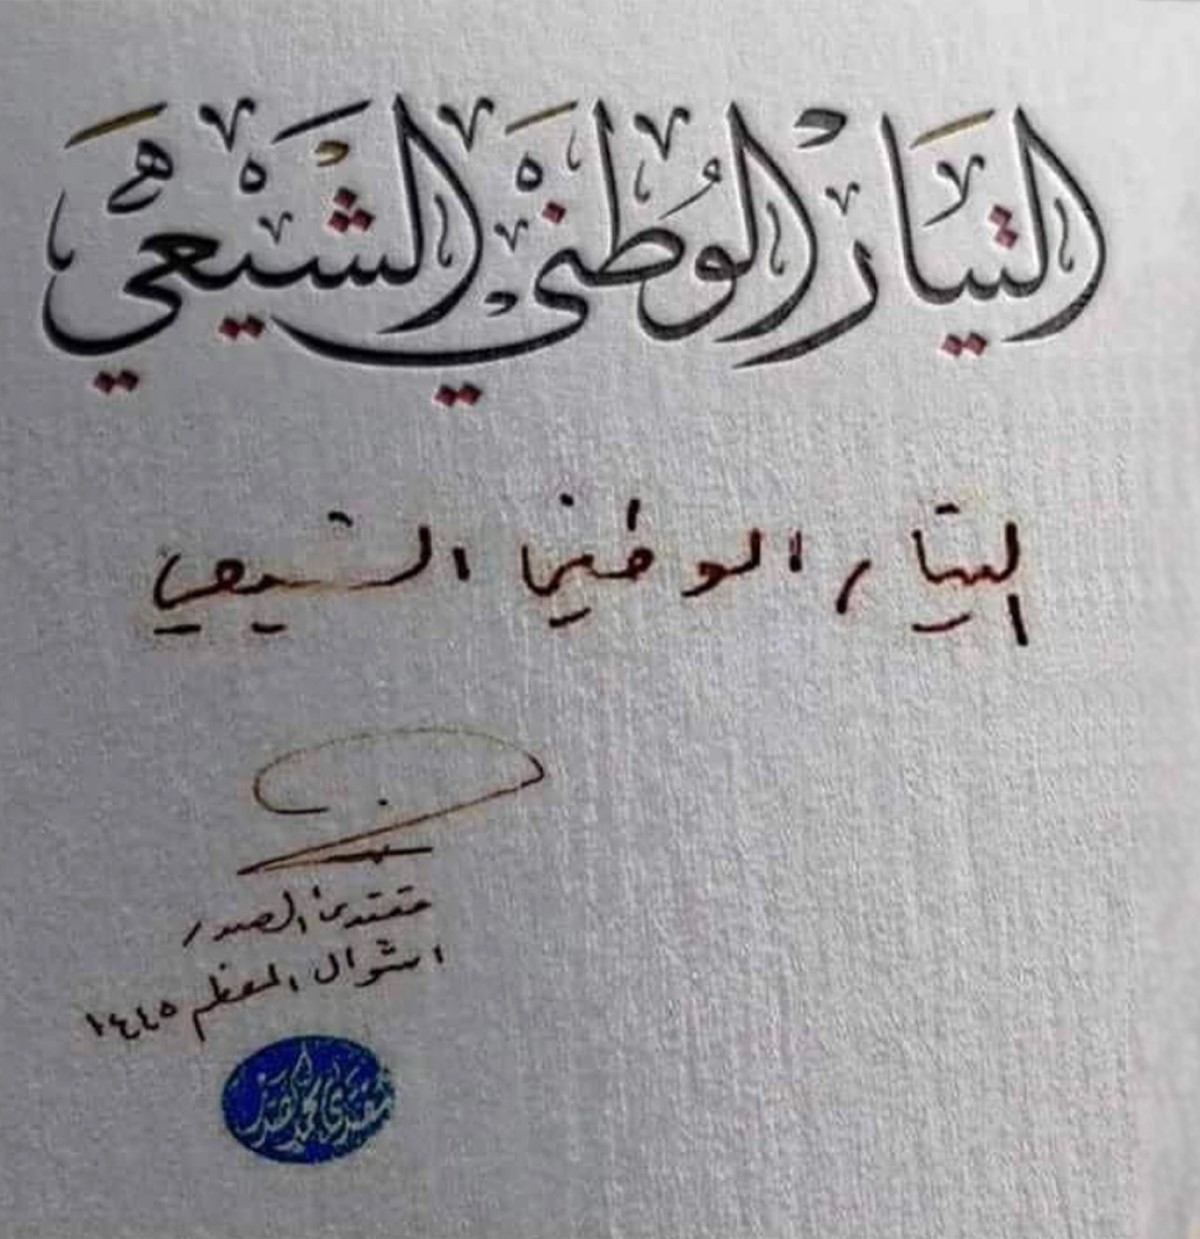 التَيَّارُ الوُطنَيْ الشَيْعَيْ
التيار الوطني الشيعي
مقتدى الصدر
١ شوال المعظم ١٤٤٥
مقتدى محمد الصدر